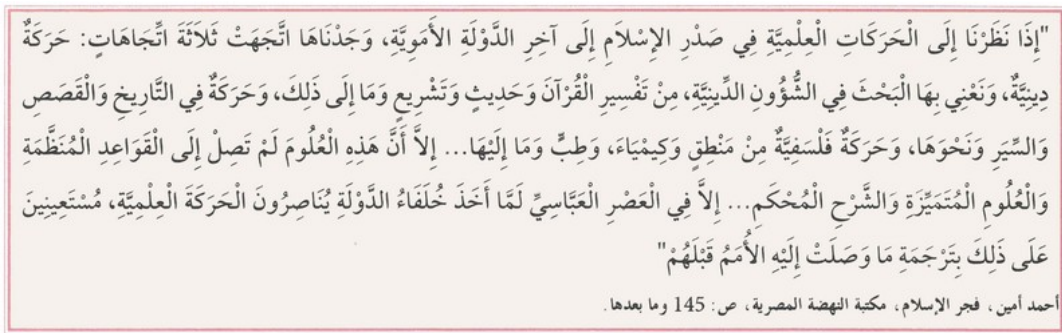 "إِذَا نَظَرْنَا إِلَى الْحَرَكَاتِ الْعِلْمِيَّةِ فِي صَدْرِ الإِسْلَامِ إِلَى آخِرِ الدَّوْلَةِ الأُمَوِيَّةِ، وَجَدْنَاهَا اتَّجَهَتْ ثَلَاثَةَ اتِّجَاهَاتٍ: حَرَكَةٌ
دِينِيَّةٌ، وَنَعْنِي بِهَا الْبَحْثَ فِي الشُّؤُونِ الدِّينِيَّةِ، مِنْ تَفْسِيرِ الْقُرْآنَ وَحَدِيثٍ وَتَشْرِيعٍ وَمَا إِلَى ذَلِكَ، وَحَرَكَةٌ فِي التَّارِيخِ وَالْقَصَصِ
وَالسِّيَرِ وَنَحْوَهَا، وَحَرَكَةٌ فَلْسَفِيَّةٌ مِنْ مَنْطِقٍ وَكِيمْيَاءَ، وَطِبٍّ وَمَا إِلَيْهَا... إِلاَّ أَنَّ هَذِهِ الْعُلُومَ لَمْ تَصِلْ إِلَى الْقَوَاعِدِ الْمُنَظَّمَةِ
وَالْعُلُومِ الْمُتَمَيِّزَةِ وَالشَّرْحِ الْمُحْكَمِ... إِلاَّ فِي الْعَصْرِ الْعَبَّاسِيِّ لَمَّا أَخَذَ خُلَفَاءُ الدَّوْلَةِ يُنَاصِرُونَ الْحَرَكَةَ الْعِلْمِيَّةِ، مُسْتَعِينِينَ
عَلَى ذَلِكَ بِتَرْجَمَةِ مَا وَصَلَتْ إِلَيْهِ الأُمَمُ قَبْلَهُمْ"
أحمد أمين، فجر الإسلام، مكتبة النهضة المصرية، ص: 145 وما بعدها.